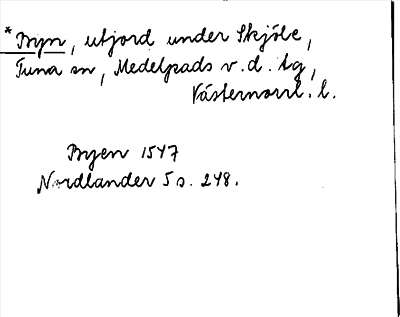 *Byn, utjord under Skjöle,
Tuna sn, Medelpads v. d. tg,
Västernorrl. l.
Byen 1547
Nordlander 5 s. 248.